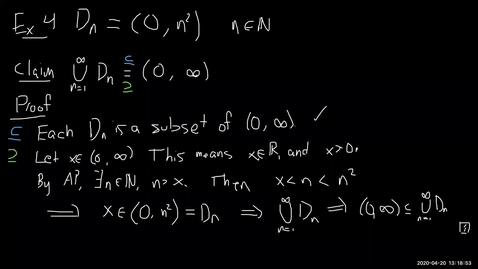 Ex 4 Dₙ = (0, n²) n∈ℕ
Claim ∞ ⋃ n=1 Dₙ ⊆ = ⊇ (0, ∞)
Proof
⊆ Each Dₙ is a subset of (0, ∞) ✓
⊇ Let x∈(0, ∞) This means x∈ℝ, and x>0.
By AP, ∃n∈ℕ, n>x. Then x<n<n²
⟹ x∈(0, n²) = Dₙ ⟹ ∞ ⋃ n=1 Dₙ ⟹ (0,∞) ⊆ ∞ ⋃ n=1 Dₙ
2020-04-20 13:18:53